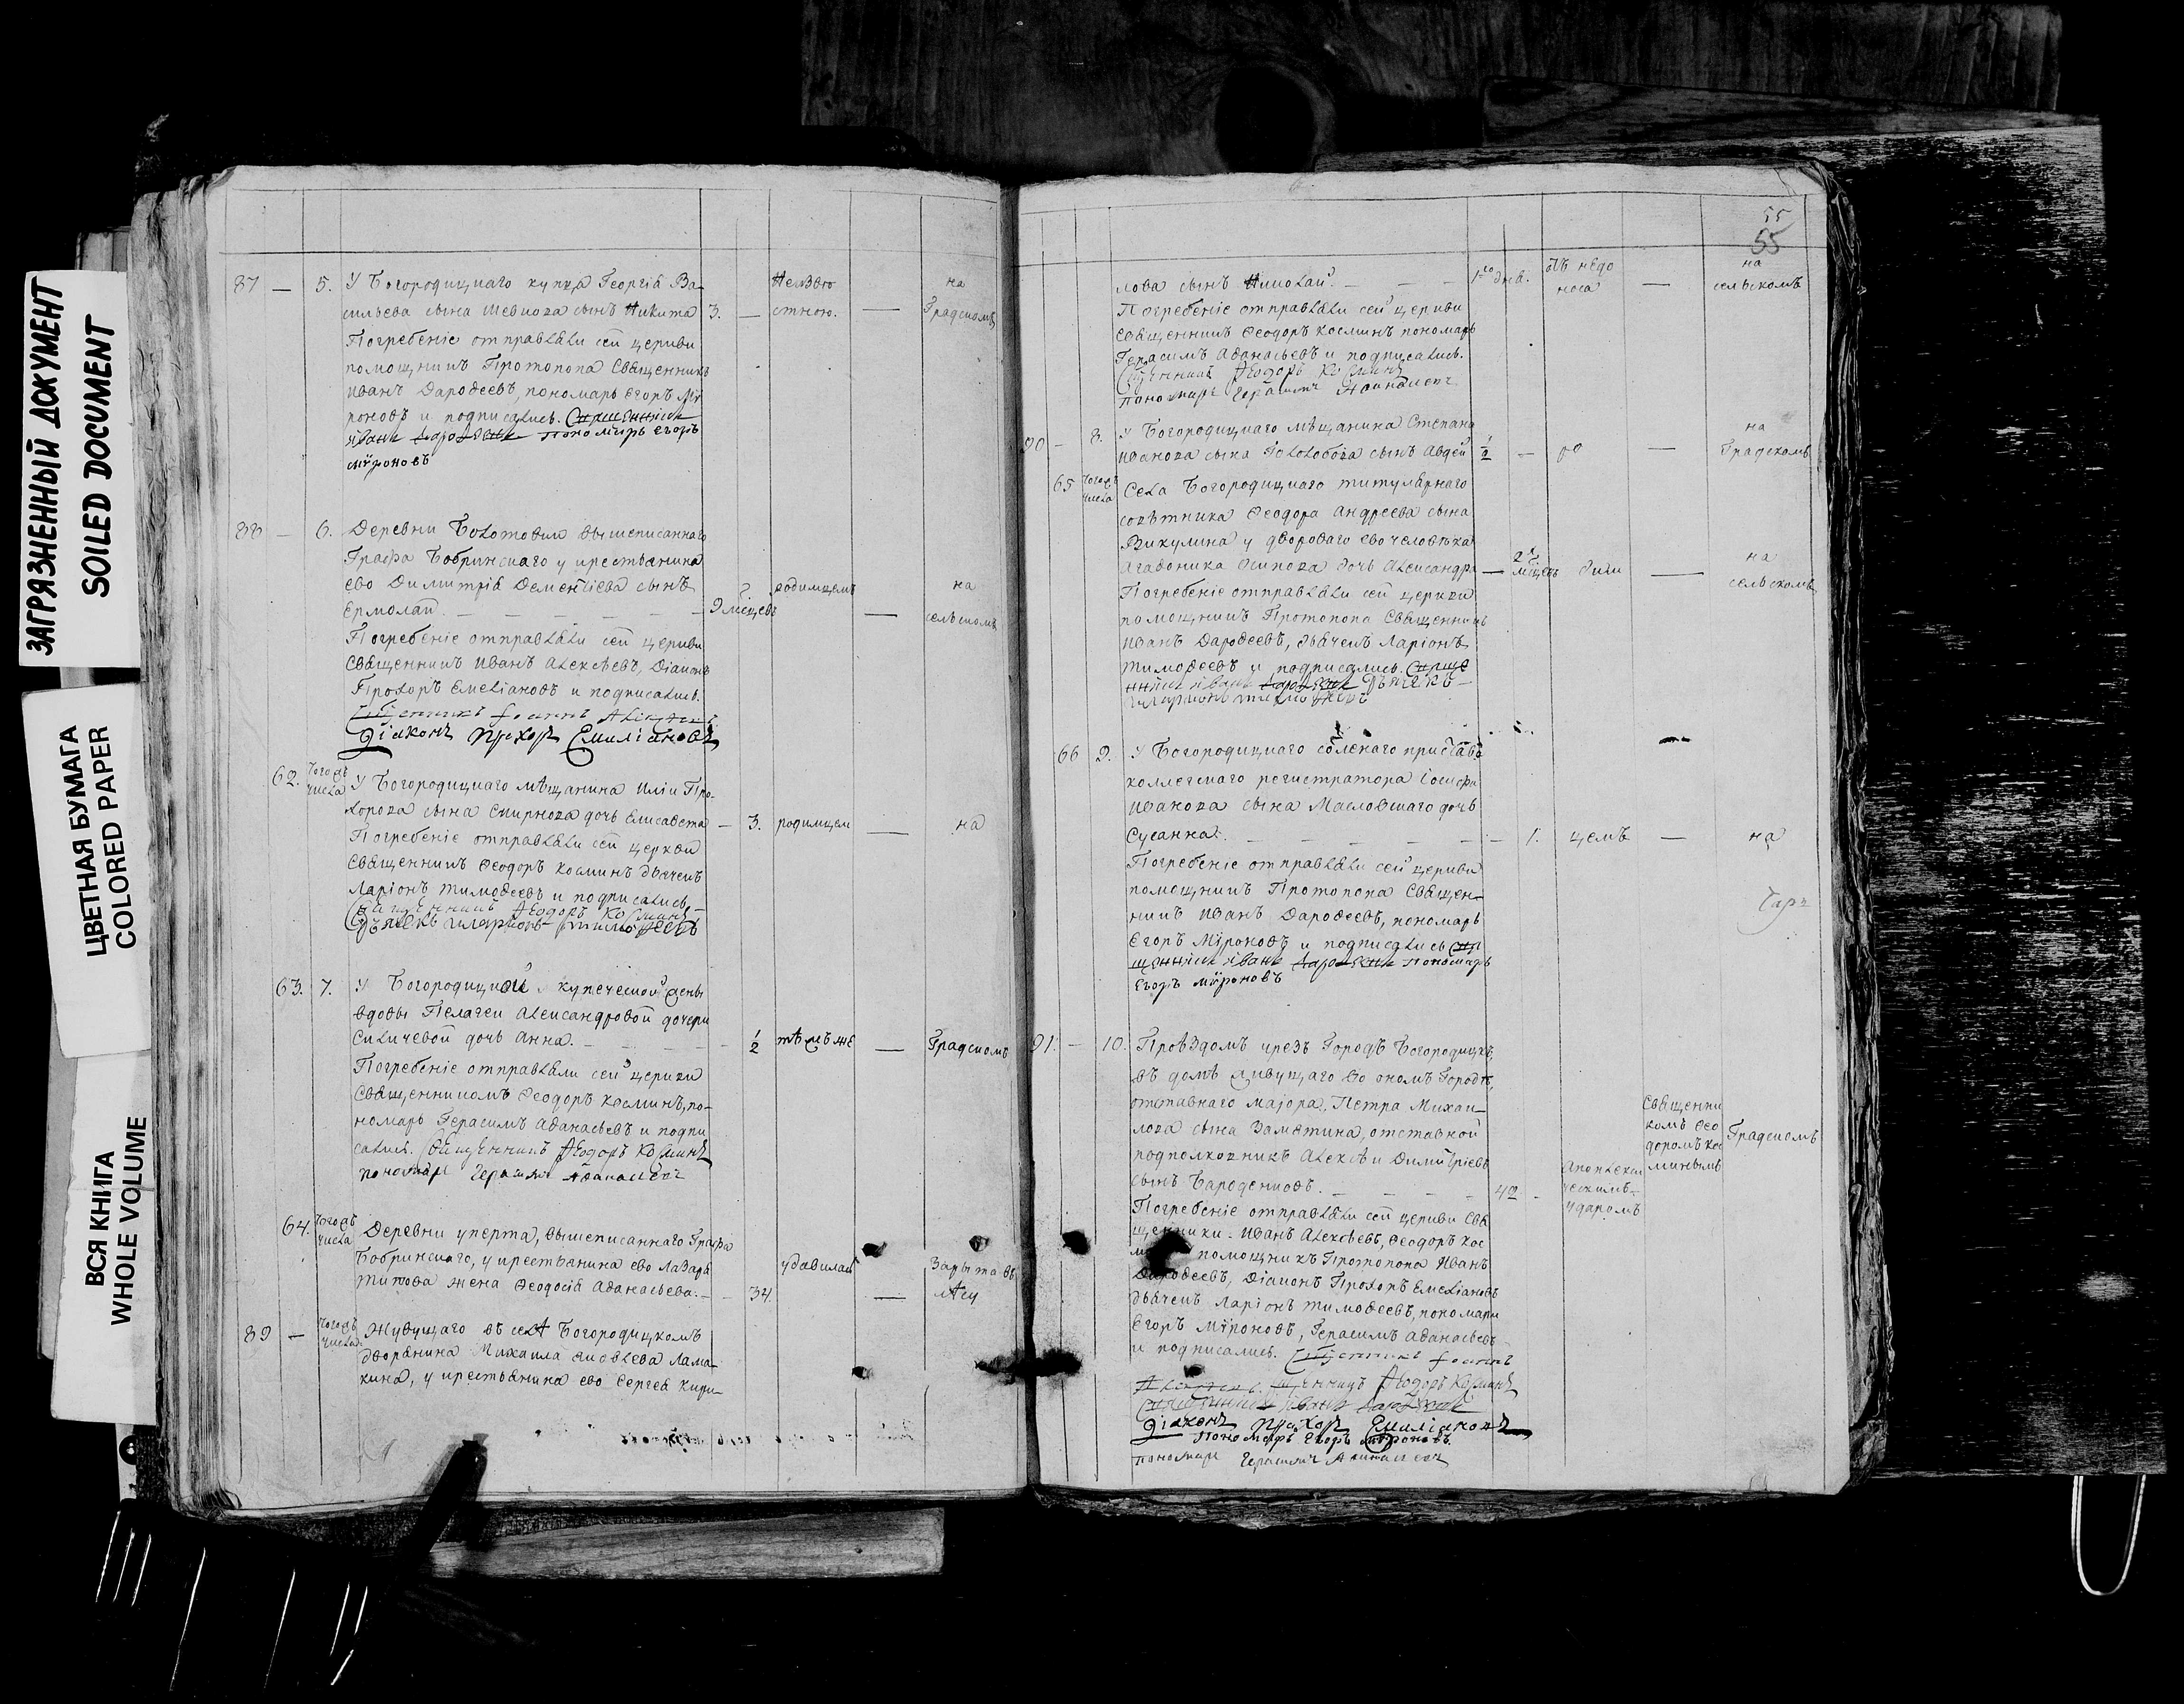 ЗАГРЯЗНЕННЫЙ ДОКУМЕНТ
SOILED DOCUMENT
ЦВЕТНАЯ БУМАГА
COLORED PAPER
ВСЯ КНИГА
WHOLE VOLUME
87 — 5. У Богородицкаго купца Георгія Ва-
сильева сына сынъ Никита 3. — — на Градскомъ
Погребеніе отправляли сей церкви
помощникъ Протопопа Священникъ
Иванъ Дарофеевъ, пономарь Егоръ Мѵ
роновъ и подписались. Священникъ
Иванъ Дарофеевъ Пономарь Егоръ
Мѵроновъ
88 — 6. Деревни вышеписаннаго
Графа Бобринскаго у крестьянина
ево Димитрія Дементіева сынъ
Ермолай — 9 мѣсяцевъ родимцемъ — на сельскомъ
Погребеніе отправляли сей церкви
Священникъ Иванъ Алексѣевъ, Діаконъ
Прохоръ Емеліановъ и подписались.
Священникъ Іоаннъ Алексѣевъ
Діаконъ Прохоръ Емиліановъ
62. Тогожъ числа У Богородицкаго мѣщанина Иліи Про-
хорова сына Смирнова дочь Елисавета — 3. родимцем — на
Погребеніе отправляли сей церкви
Священникъ Феодоръ Косминъ дьячекъ
Ларіонъ Тимофеевъ и подписались
Священникъ Феодоръ Косминъ
Дьячекъ Иларионъ Тимофеевъ
63. 7. У Богородицкой купеческой жены
вдовы Пелагеи Александровой дочери
дочь Анна. — 1/2 тѣмъ же — Градскомъ
Погребеніе отправляли сей церкви
Священникомъ Феодоръ Косминъ, по-
номарь Герасимъ Афанасьевъ и подпи
сались. Священникъ Феодоръ Косминъ
пономарь Герасимъ Афанасьевъ
64. Тогожъ числа Деревни Уперта, вышеписаннаго Графа
Бобринскаго, у крестьянина ево Лазаря
Титова жена Феодосія Афанасьева. — 34 удавилась — Зарыта въ лѣсу
89 — Тогожъ числа Живущаго въ селѣ Богородицкомъ
дворянина Михаила Яковлева Лама-
кина, у крестьянина ево Сергея Кири-
55
55
лова сынъ Николай. — 1го днв. отъ недо носа — на сельскомъ
Погребеніе отправляли сей церкви
Священникъ Феодоръ Косминъ пономарь
Герасимъ Афанасьевъ и подписались.
Священникъ Феодоръ Косминъ
пономарь Герасимъ Афанасьевъ
90 — 8. У Богородицкаго мѣщанина Степана
Иванова сына Гололобова сынъ Авдей 1/2 — — на Градскомъ
65 Тогожъ числа Села Богородицкаго титулярнаго
совѣтника Феодора Андреева сына
Викулина у двороваго ево человѣка
Агафоника Осипова дочь Александра — 2 мѣсяцевъ — на сельскомъ
Погребеніе отправляли сей церкви
помощникъ Протопопа Священникъ
Иванъ Дарофеевъ, дьячекъ Ларіонъ
Тимофеевъ и подписались. Священ
никъ Иванъ Дарофеевъ Дьячекъ
Иларионъ Тимофеевъ
66 9. У Богородицкаго солянаго пристава
коллегскаго регистратора Іосифа
Иванова сына Масловскаго дочь
Сусанна. — 1. цемъ — на
Погребеніе отправляли сей церкви
помощникъ Протопопа Священ-
никъ Иванъ Дарофеевъ, пономарь
Егоръ Мѵроновъ и подписались Свя
щенникъ Иванъ Дарофеевъ Пономарь
Егоръ Мѵроновъ
91. — 10. Проѣздомъ чрезъ Городъ Богородицкъ,
въ домѣ живущаго во ономъ Городѣ,
отставнаго маіора, Петра Михаи-
лова сына Замятина, отставной
подполковникъ Алексѣи Димитріевъ
сынъ 42 — Апоплекси ческимъ ударомъ Священни комъ Фео доромъ Кос минымъ Градскомъ
Погребеніе отправляли сей церкви Свя
щенники Иванъ Алексѣевъ, Феодоръ Кос
помощникъ Протопопа Иванъ
Дарофеевъ, Діаконъ Прохоръ Емеліановъ
дьячекъ Ларіонъ Тимофеевъ, пономари
Егоръ Мѵроновъ, Герасимъ Афанасьевъ
и подписались. Священникъ Іоаннъ
Алексѣевъ. Священникъ Феодоръ Косминъ
Священникъ Иванъ Дарофеевъ
Діаконъ Прохоръ Емиліановъ
Пономарь Егоръ Мѵроновъ.
пономарь Герасимъ Афанасьевъ